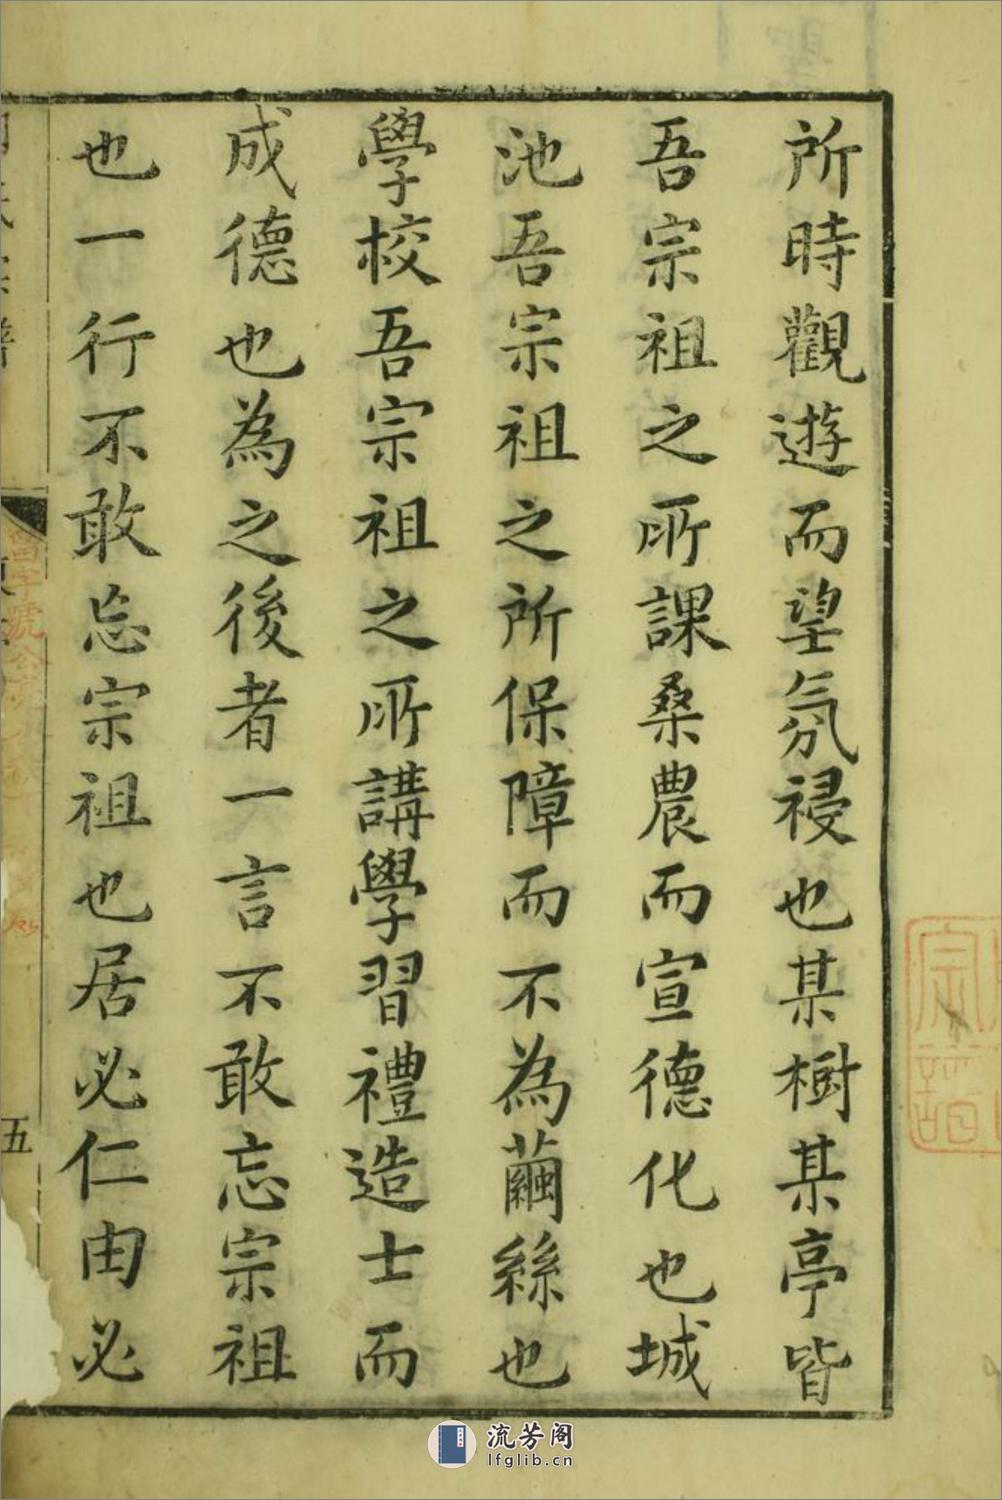 所時觀遊而望氛祲也某樹某亭皆
吾宗祖之所課桑農而宣德化也城
池吾宗祖之所保障而不為繭絲也
學校吾宗祖之所講學習禮造士而
成德也為之後者一言不敢忘宗祖
也一行不敢忘宗祖也居必仁由必
五
宗譜
流芳阁
lfglib.cn